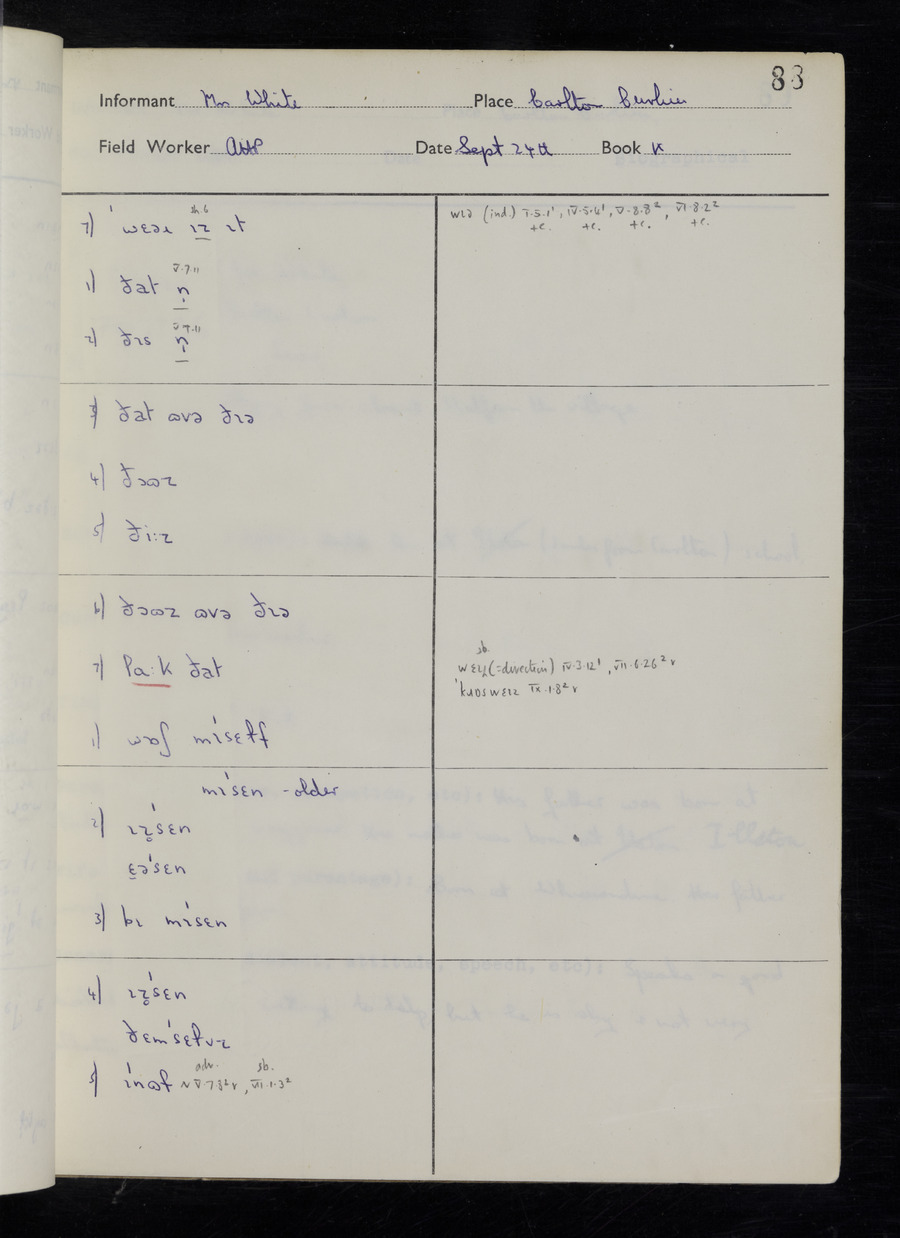 83
Informant Mr White Place Carlton Curlieu
Field Worker Date Sept 24th Book K
7) ˈwɛəɹ ɪz ɪt
wɪə (ind.) I·5·1¹, IV·5·4¹, V·8·8², VI·8·2²
+c. +c. +c. +c.
V·7·11
1) ðat n̩
2) ðɪs n̩
3) ðat ɷvə ðɪə
4) ðəɷz
5) ði:z
6) ðəɷz ɷvə ðɪə
sb.
7) pa:k ðat
wɛɪ (=direction) IV·3·12¹, VII·6·26² v
ˈkɹɒswɛɪz IX·1·8² v
1) wɒʃ mɪˈsɛɫf
mɪˈsɛn - older
2) ɪz̥ˈsɛn
ɛəˈsɛn
3) bɪ mɪˈsɛn
4) ɪz̥ˈsɛn
ðɛmˈsɛɫvz
adv. sb.
5) ɪˈnɷf ~ V·7·8² v, VII·1·3²